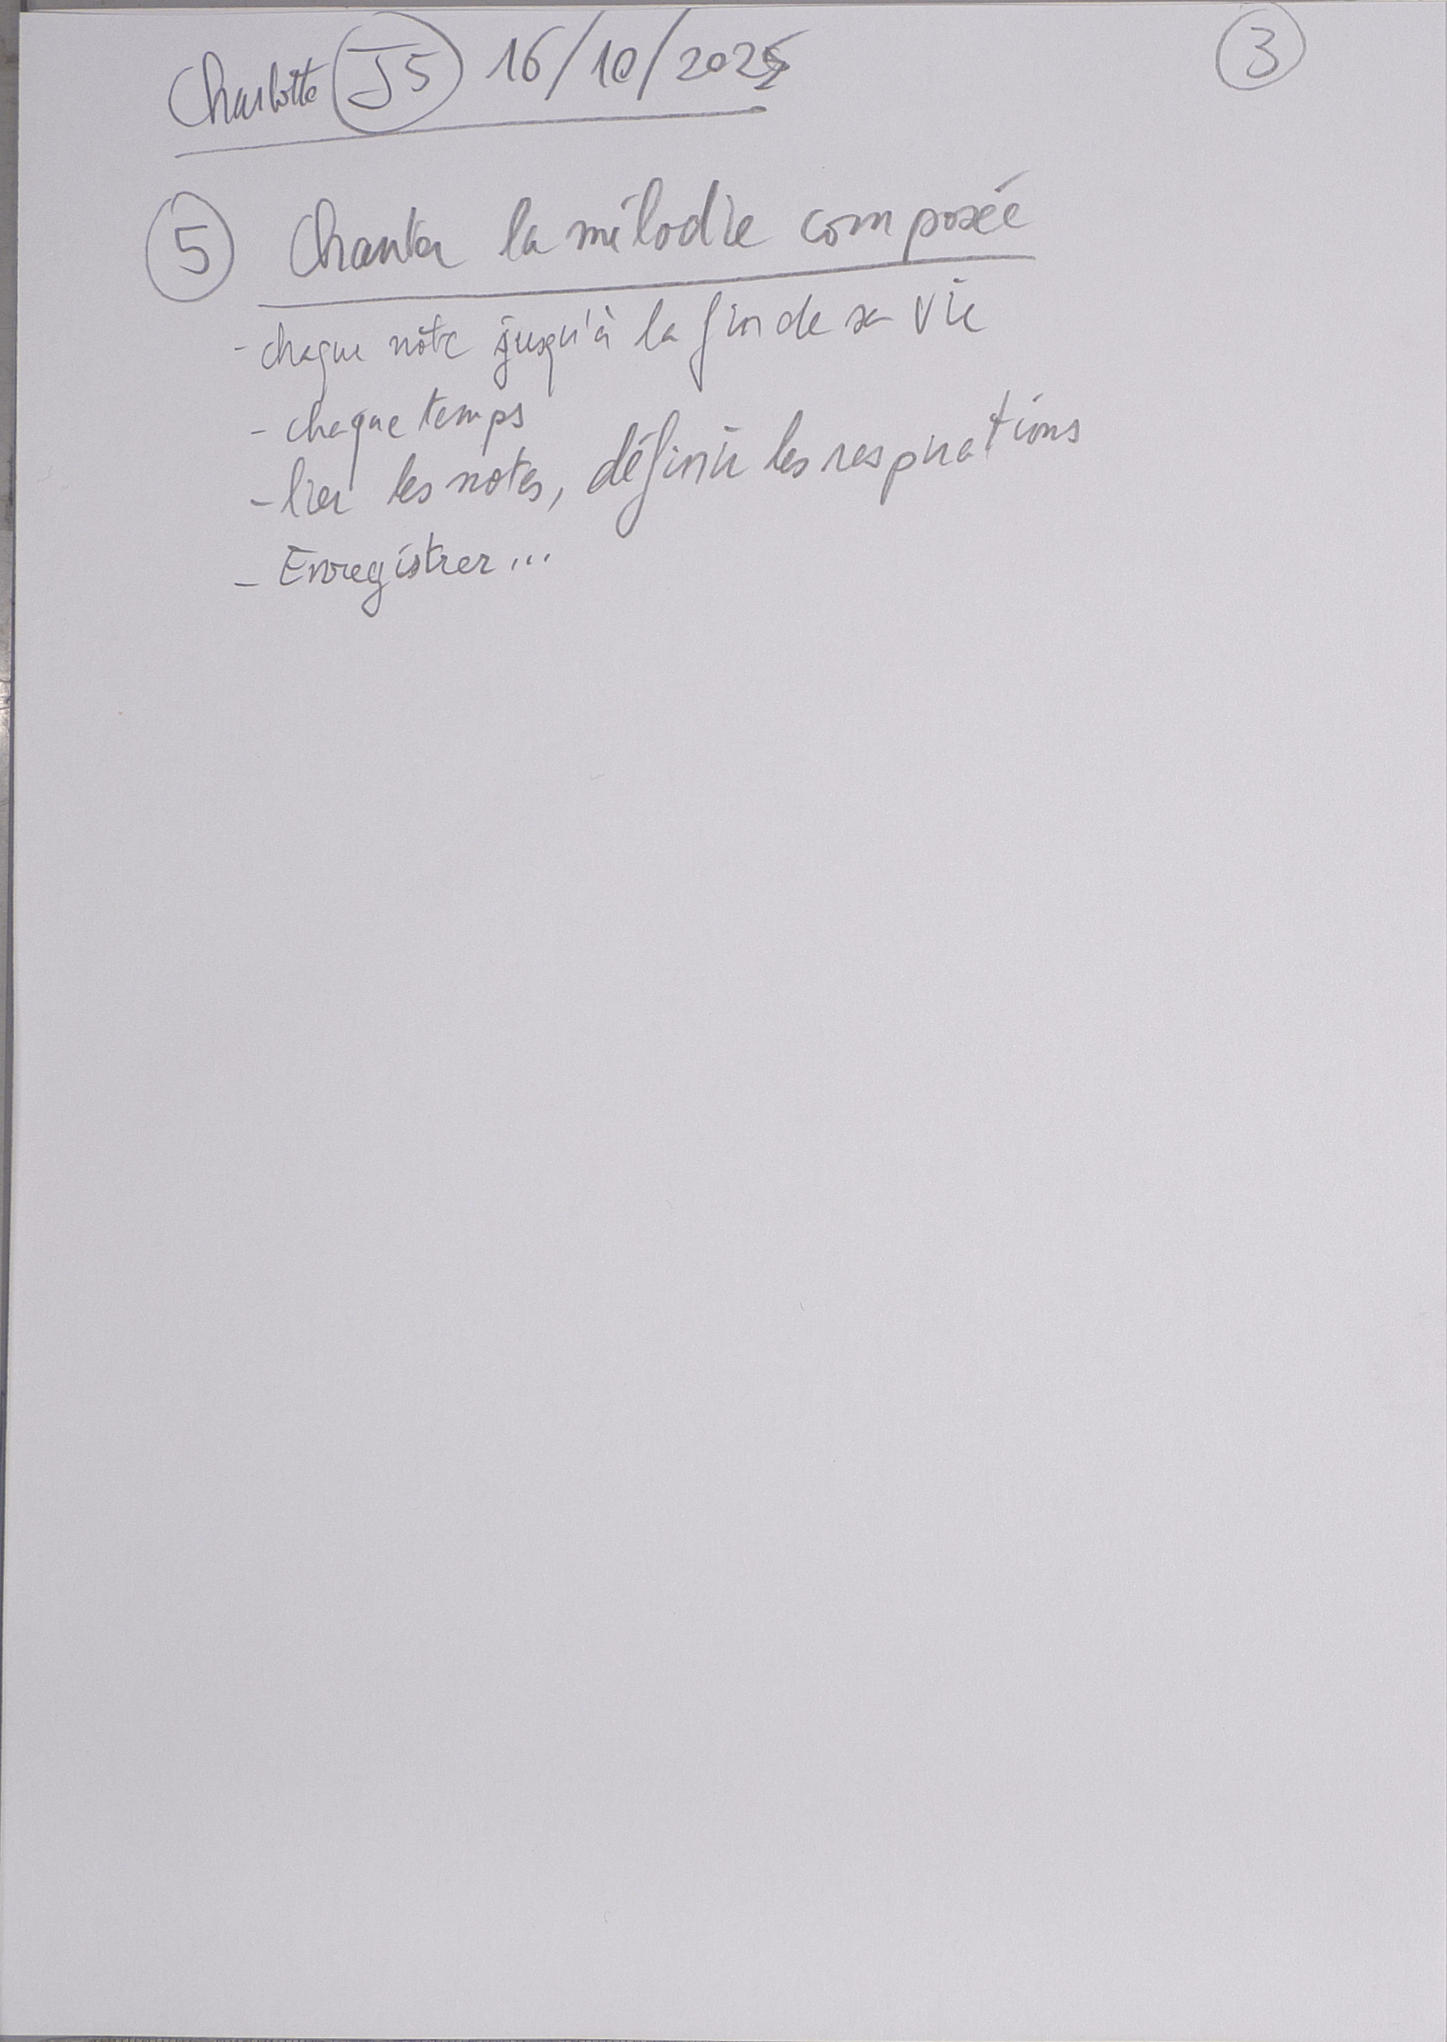 Charlotte J5 16/10/2025
3
5 Chanter la mélodie composée
- chaque note jusqu'à la fin de sa vie
- chaque temps
- lier les notes, définir les respirations
- Enregistrer...